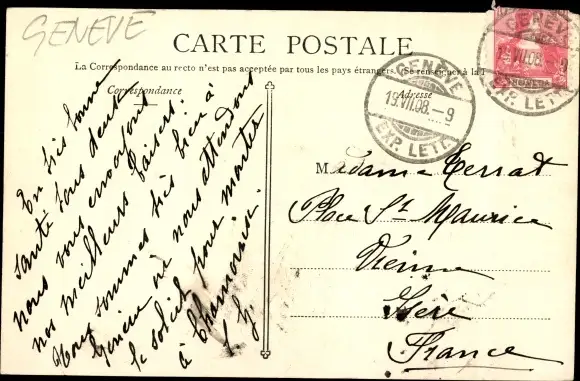 GENEVE
CARTE POSTALE
La Correspondance au recto n'est pas acceptée par tous les pays étrangers. (Se renseigner à la P
Correspondance
Adresse
GENÈVE
19.VII.08.-9
EXP. LETT.
GENÈVE
VII.08.
EXP. LETT.
En très bonne
santé tous deux
nous vous envoyons
nos meilleurs baisers.
Nous sommes très bien à
Genève où nous attendons
le soleil pour monter
à Chamonix.
Madame Terrat
Place St Maurice
Vienne
Isère
France